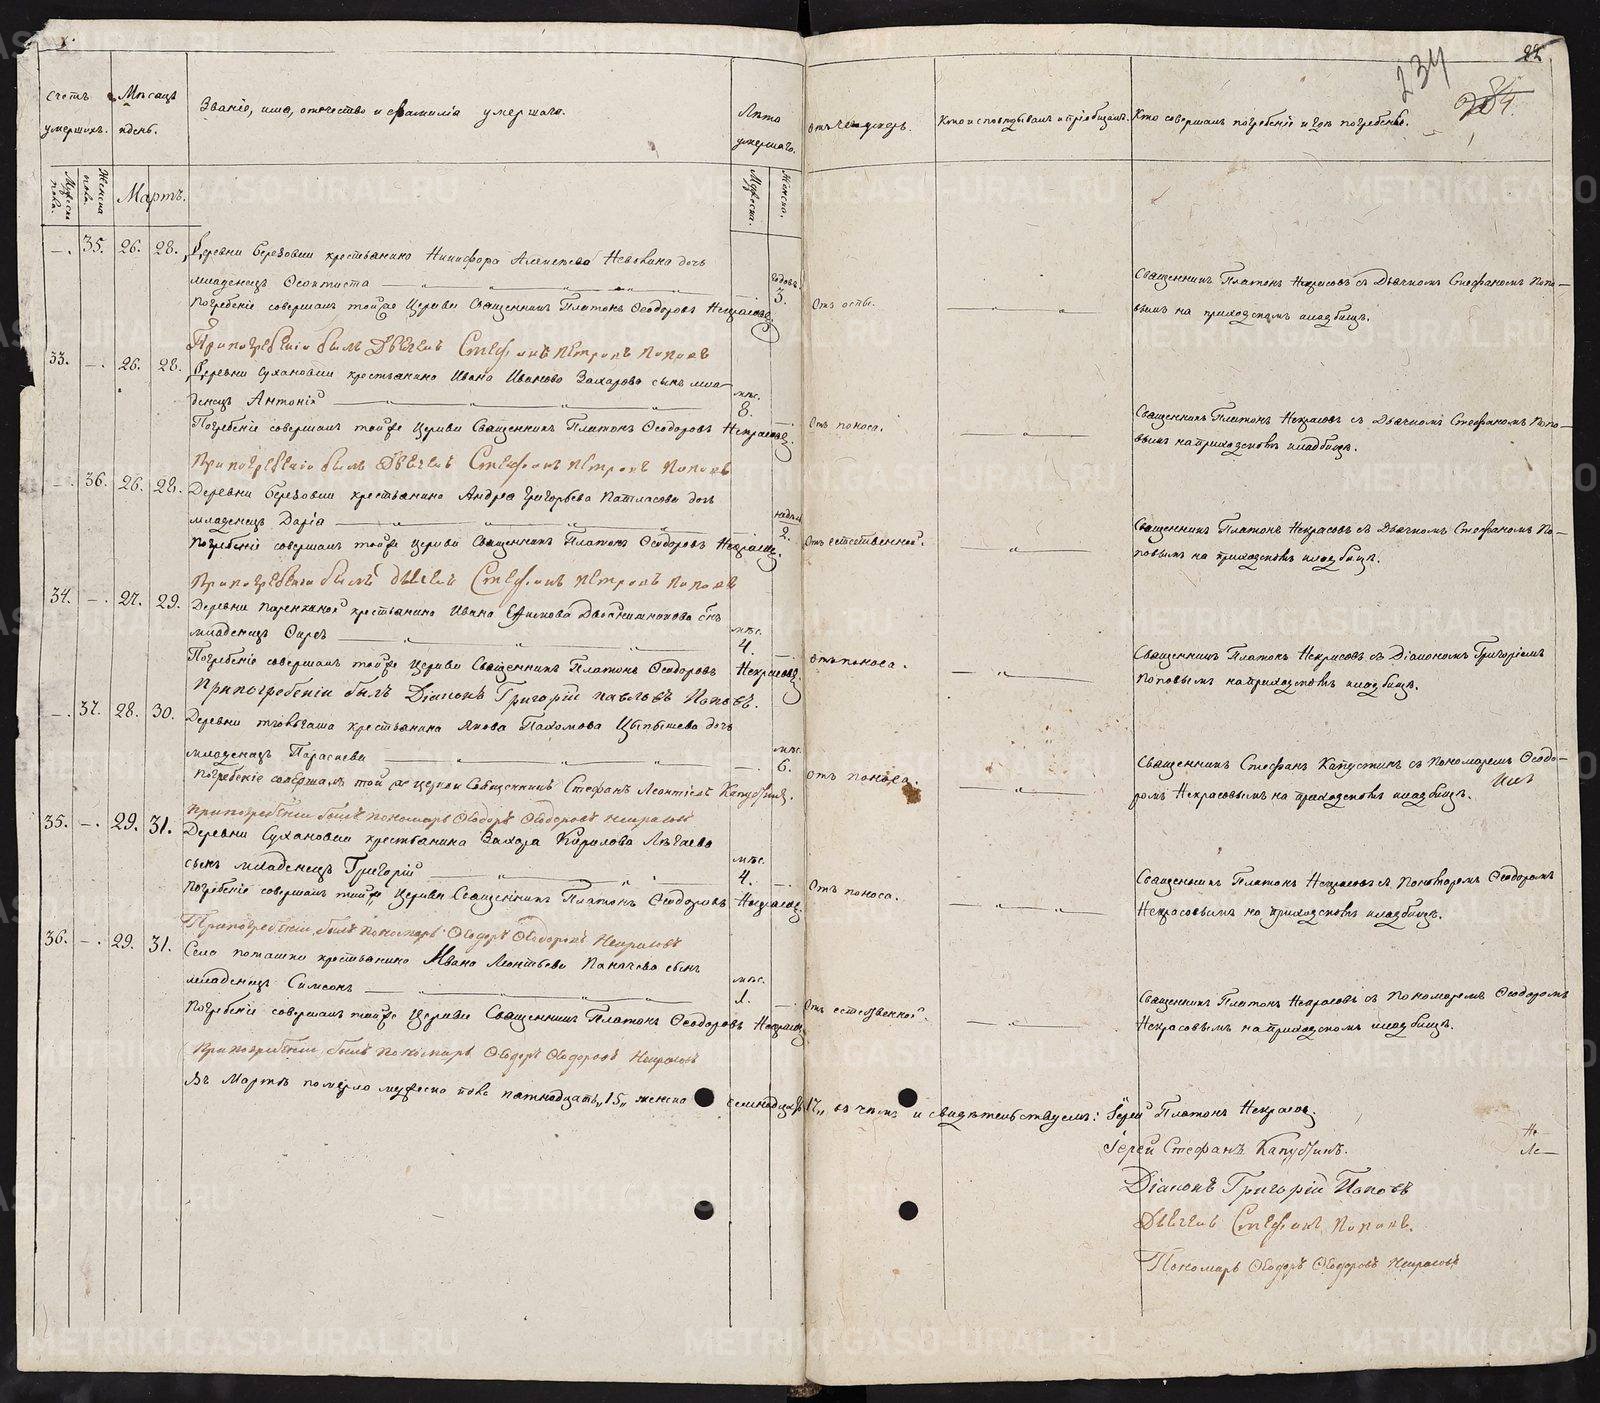 Счетъ умершихъ.
Мѣсяцъ и день.
Званіе, имя, отечество и фамилія умершаго.
Лѣто умершаго.
Отъ чего умеръ.
Кто исповѣдывалъ и пріобщалъ.
Кто совершалъ погребеніе и гдѣ погребены.
234
284.
22
Мужеска пола.
Женска пола.
Мартъ.
Мужеска.
Женска.
—. 35. 26. 28. Деревни Березовки крестьянина Никифора Алексѣева дочь
младенецъ Феоктиста
годовъ 3.
Отъ оспы.
Погребеніе совершалъ тойже Церкви Священникъ Платонъ Феодоровъ Некрасовъ
При погребеніи былъ Дьячекъ Стефанъ Петровъ Поповъ
Священникъ Платонъ Некрасовъ съ Дьячкомъ Стефаномъ Попо-
вымъ на приходскомъ кладбищѣ.
33. —. 26. 28. Деревни Сухановки крестьянина Ивана Иванова Захарова сынъ мла-
денецъ Антоній
мѣс. 8.
Отъ поноса.
Погребеніе совершалъ тойже Церкви Священникъ Платонъ Феодоровъ Некрасовъ
При погребеніи былъ Дьячекъ Стефанъ Петровъ Поповъ
Священникъ Платонъ Некрасовъ съ Дьячкомъ Стефаномъ Попо-
вымъ на приходскомъ кладбищѣ.
—. 36. 26. 28. Деревни Березовки крестьянина Андрея Григорьева дочь
младенецъ Дарія
недѣль 2.
Отъ естественной.
Погребеніе совершалъ тойже Церкви Священникъ Платонъ Феодоровъ Некрасовъ.
При погребеніи былъ Дьячекъ Стефанъ Петровъ Поповъ
Священникъ Платонъ Некрасовъ съ Дьячкомъ Стефаномъ По-
повымъ на приходскомъ кладбищѣ.
34. —. 27. 29. Деревни крестьянина Ивана сынъ
младенецъ
мѣс. 4.
Отъ поноса.
Погребеніе совершалъ тойже Церкви Священникъ Платонъ Феодоровъ Некрасовъ
При погребеніи былъ Діаконъ Григорій Павловъ Поповъ.
Священникъ Платонъ Некрасовъ съ Діакономъ Григоріемъ
Поповымъ на приходскомъ кладбищѣ.
—. 37. 28. 30. Деревни крестьянина Якова Пахомова дочь
младенецъ Параскева
мѣс. 6.
Отъ поноса.
Погребеніе совершалъ той же церкви Священникъ Стефанъ Леонтіевъ Капустинъ.
При погребеніи былъ пономарь Феодоръ Феодоровъ Некрасовъ
Священникъ Стефанъ Капустинъ съ Пономаремъ Феодо-
ромъ Некрасовымъ на приходскомъ кладбищѣ.
35. —. 29. 31. Деревни Сухановки крестьянина Захара Кирилова
сынъ младенецъ Григорій
мѣс. 4.
Отъ поноса.
Погребеніе совершалъ тойже Церкви Священникъ Платонъ Феодоровъ Некрасовъ
При погребеніи былъ пономарь Феодоръ Феодоровъ Некрасовъ
Священникъ Платонъ Некрасовъ съ Пономаромъ Феодоромъ
Некрасовымъ на приходскомъ кладбищѣ.
36. —. 29. 31. Село Поташки крестьянина Ивана Леонтьева сынъ
младенецъ Симеонъ
мѣс. 1.
Отъ естественной.
Погребеніе совершалъ тойже Церкви Священникъ Платонъ Феодоровъ Некрасовъ
При погребеніи былъ пономарь Феодоръ Феодоровъ Некрасовъ
Священникъ Платонъ Некрасовъ съ Пономаремъ Феодоромъ
Некрасовымъ на приходскомъ кладбищѣ.
Въ Мартѣ померло мужеска пола пятнадцать „15„ женска семнадцать 17„ въ чемъ и свидѣтельствуемъ: Іерей Платонъ Некрасовъ.
Іерей Стефанъ Капустинъ.
Діаконъ Григорій Поповъ
Дьячекъ Стефанъ Поповъ.
Пономарь Феодоръ Феодоровъ Некрасовъ
METRIKI.GASO-URAL.RU